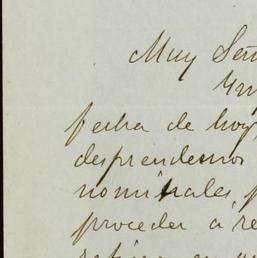 Muy Señ
fecha de hoy
desprendemos
nominales p
proceder a re